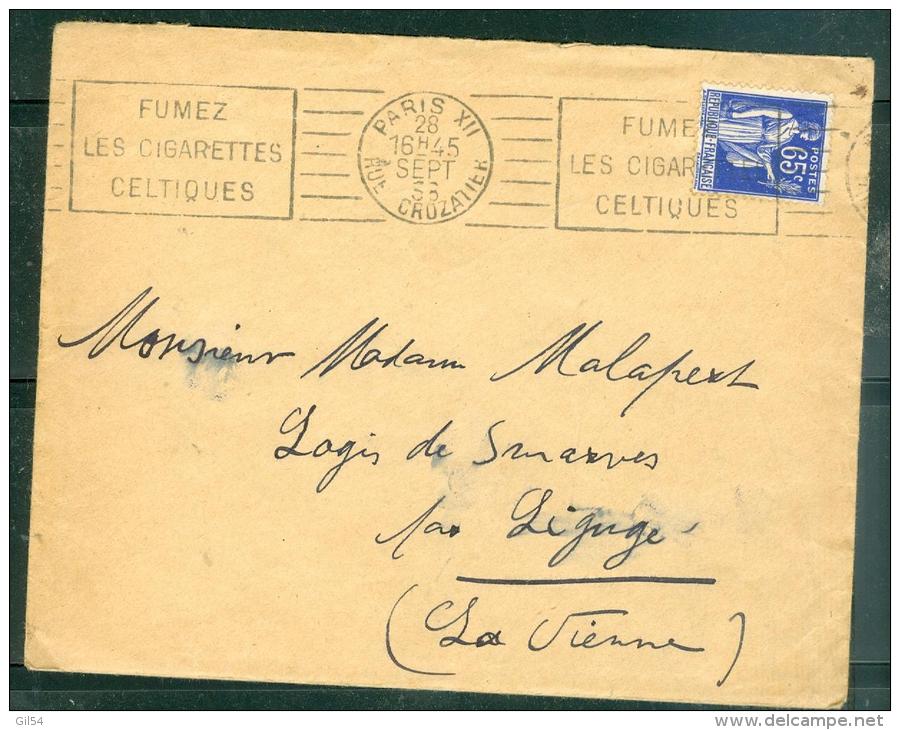 FUMEZ
LES CIGARETTES
CELTIQUES
PARIS XII
28
16H45
SEPT
RUE CROZATIER
FUME
LES CIGAR
CELTIQUES
REPUBLIQUE FRANÇAISE
65c
POSTES
Monsieur Madame Malapert
Logis de Smarves
par Ligugé
(La Vienne)
Gil54
www.delcampe.net